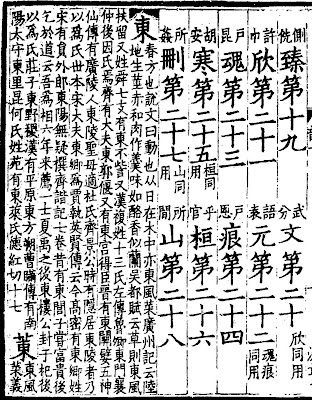 側詵臻第十九 武分文第二十欣同用
許巾欣第二十一 語袁元第二十二魂痕同用
戶昆魂第二十三 戶恩痕第二十四
胡安寒第二十五桓同用 乎官桓第二十六
所姦刪第二十七山同用 所閒山第二十八
東春方也說文曰動也从日在木中亦東風菜廣州記云陸
地生莖赤和肉作羹味如酪香似蘭吳都賦云草則東風
扶留又姓舜七友有東不訾又漢複姓十三氏左傳魯卿東門襄
仲後因氏焉齊有大夫東郭偃又有東宮得臣晉有東關嬖五神
仙傳有廣陵人東陵聖母適杜氏齊景公時有隱居東陵者乃
以為氏世本宋大夫東鄉為賈執英賢傳云今高密有東鄉姓
宋有員外郎東陽無疑撰齊諧記七卷昔有東閭子嘗富貴後
乞於道云吾為相六年未薦一士夏禹之後東樓公封于杞後
以為氏莊子東野稷漢有平原東方朔曹瞞傳有南
陽太守東里昆何氏姓苑有東萊氏德紅切十七
菄東風菜義